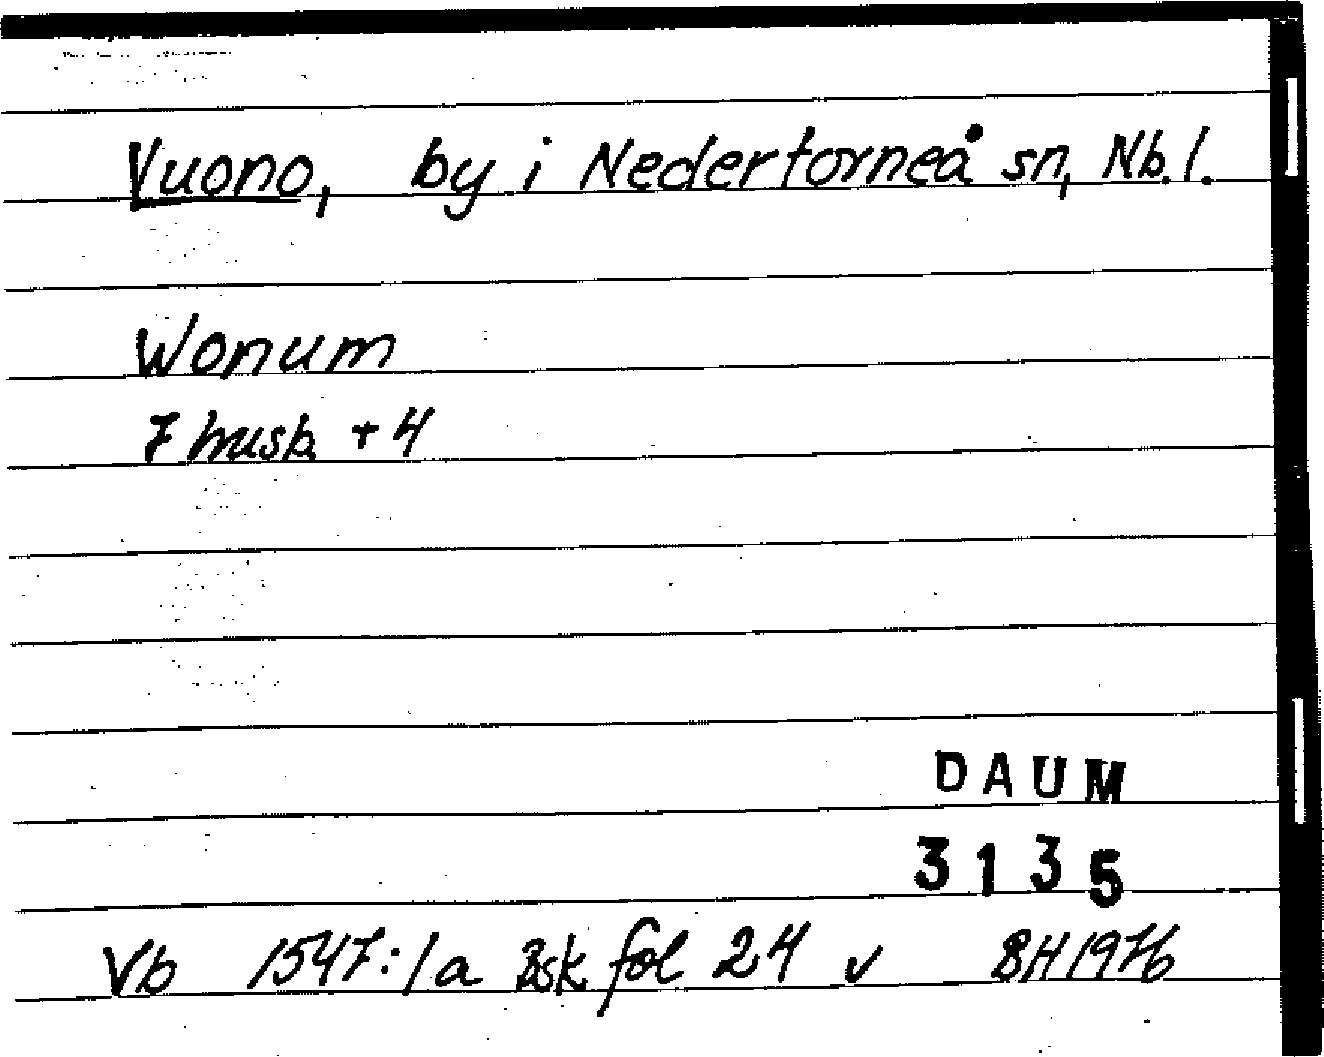 Vuono, by i Nedertorneå sn, Nb. l.
Wonum
7 husb. + 4
DAUM
3135
Vb 1547:1a Bsk fol 24 v BH 1976